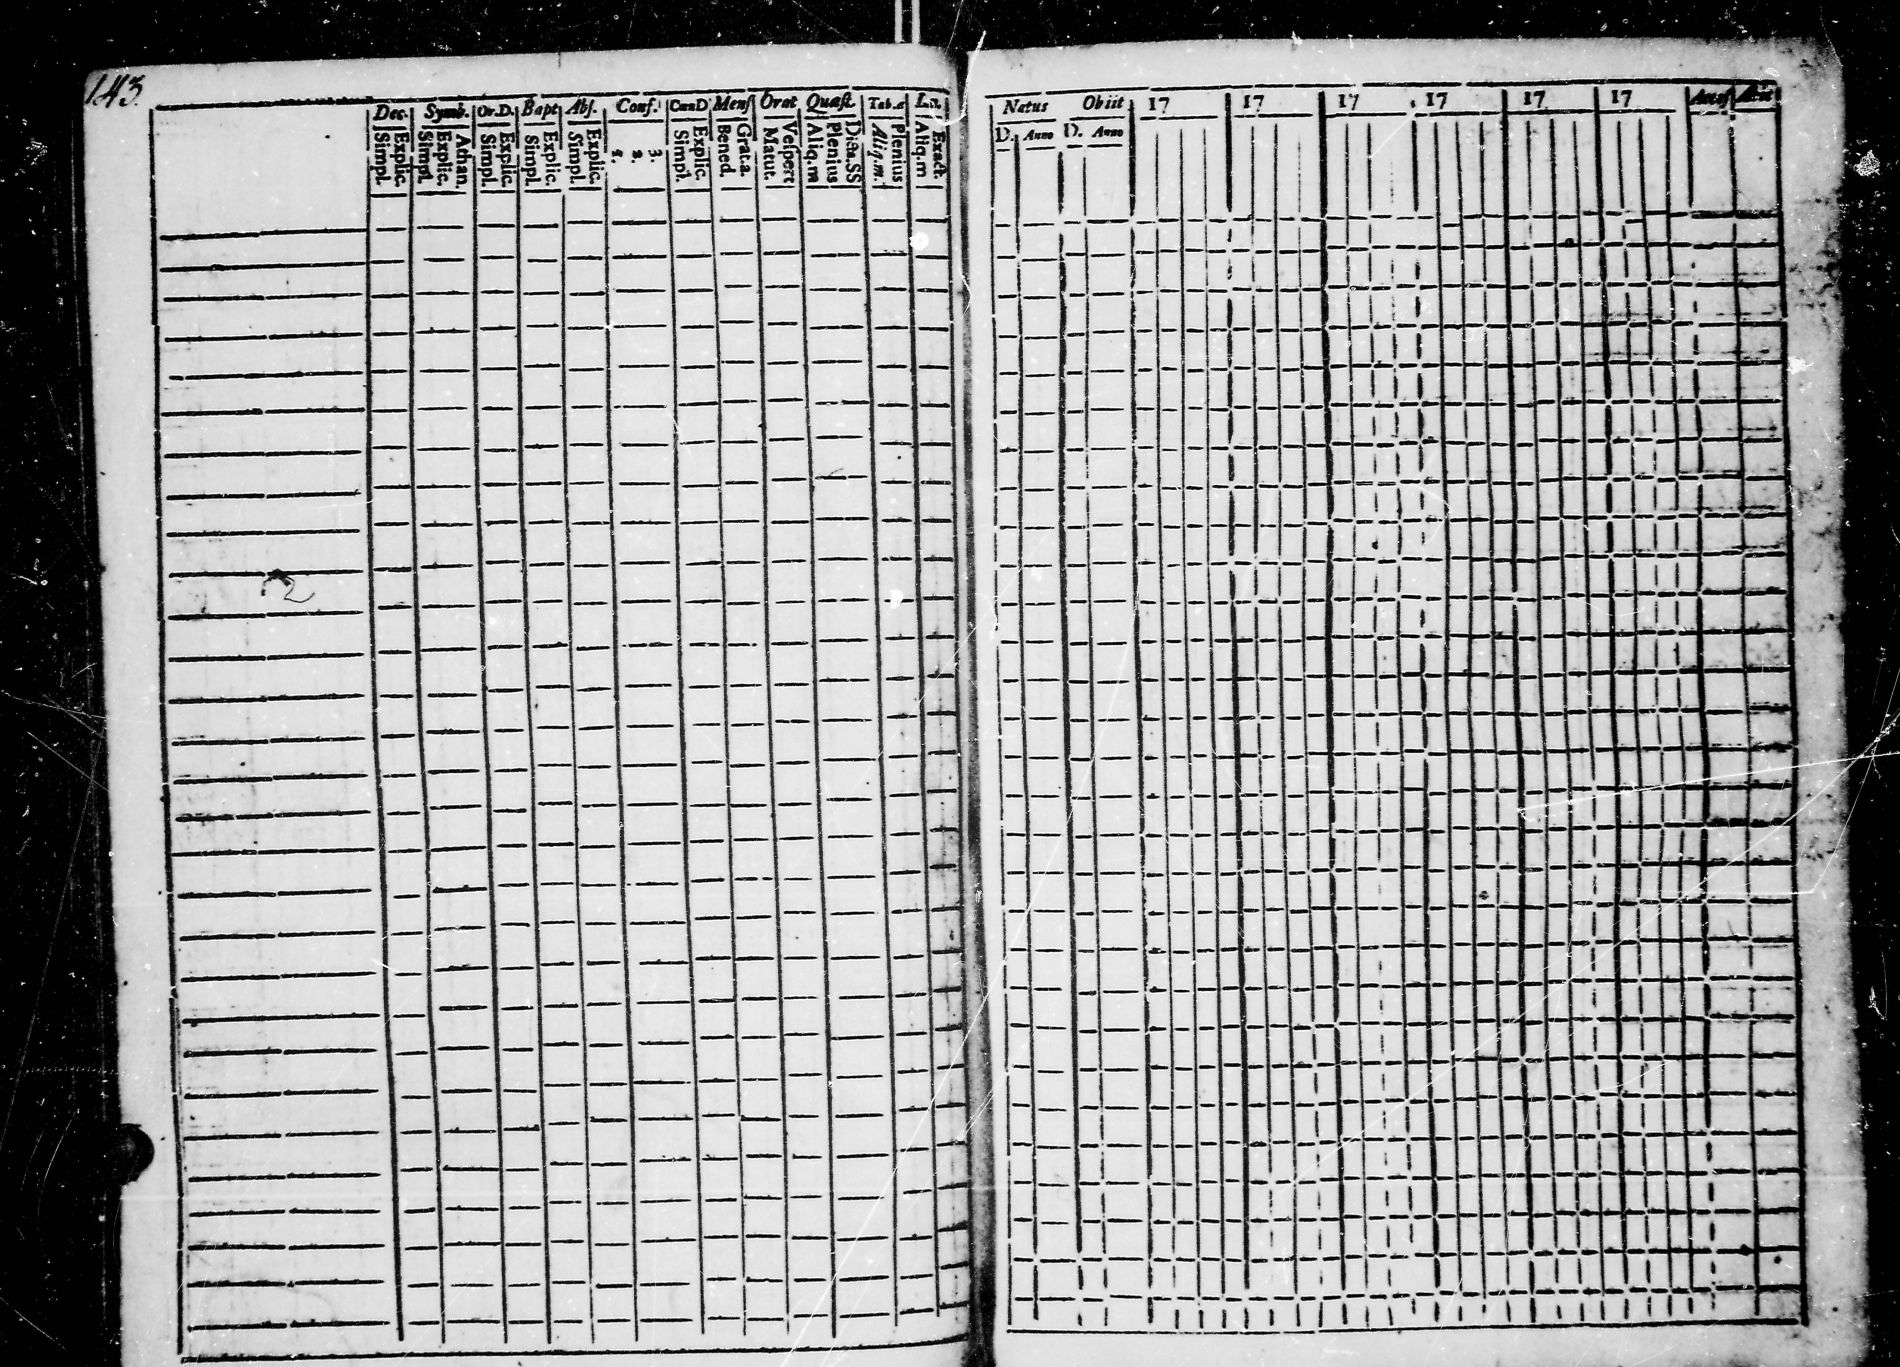 143.
Dec. Symb. Or.D. Bapt Abs. Conf. CœnD Mens Orat Quæst. Tab.æ
Explic. Simpl. Athan. Explic. Simpl. Explic. Simpl. Explic. Simpl. Explic. Simpl. 3. 2. 1. Explic. Simpl. Grat.a. Bened Vespert Matut. D.ta.SS Plenius Aliq.m Plenius Aliq.m. Exact. Aliq.m
Natus Obiit 17 17 17 17 17 17
D. Anno D. Anno